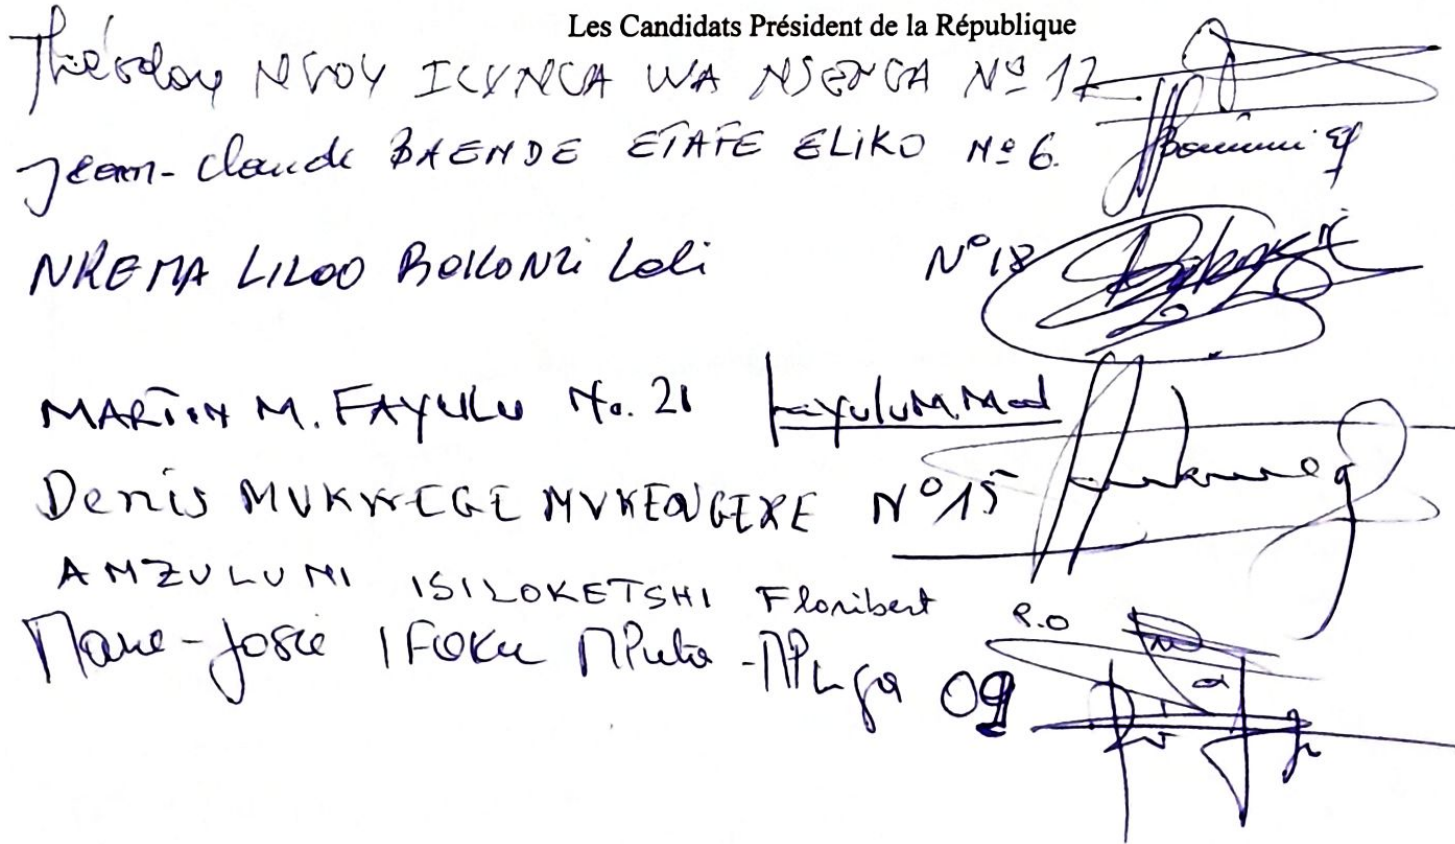 Les Candidats Président de la République
Théodore NGOY ILUNGA WA NSENGA Nº 17
Jean-Claude BAENDE ETAFE ELIKO Nº 6.
NKEMA LILOO BOKONZI Loli N° 18
MARTIN M. FAYULU No. 21 FayuluM.Mad
Denis MUKWEGE MUKENGERE N° 15
AMZULUNI ISILOKETSHI Floribert P.O
Marie-Josée IFOKU MPuta-MPunga 09